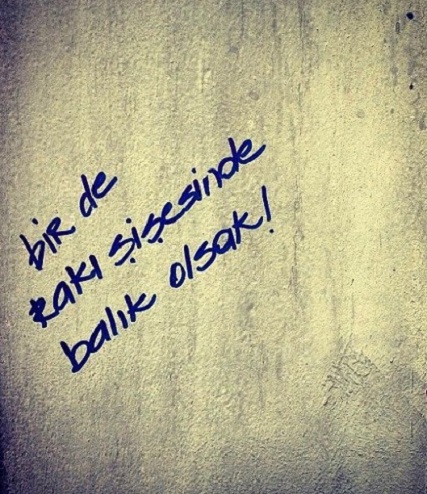 bir de
rakı şişesinde
balık olsak!